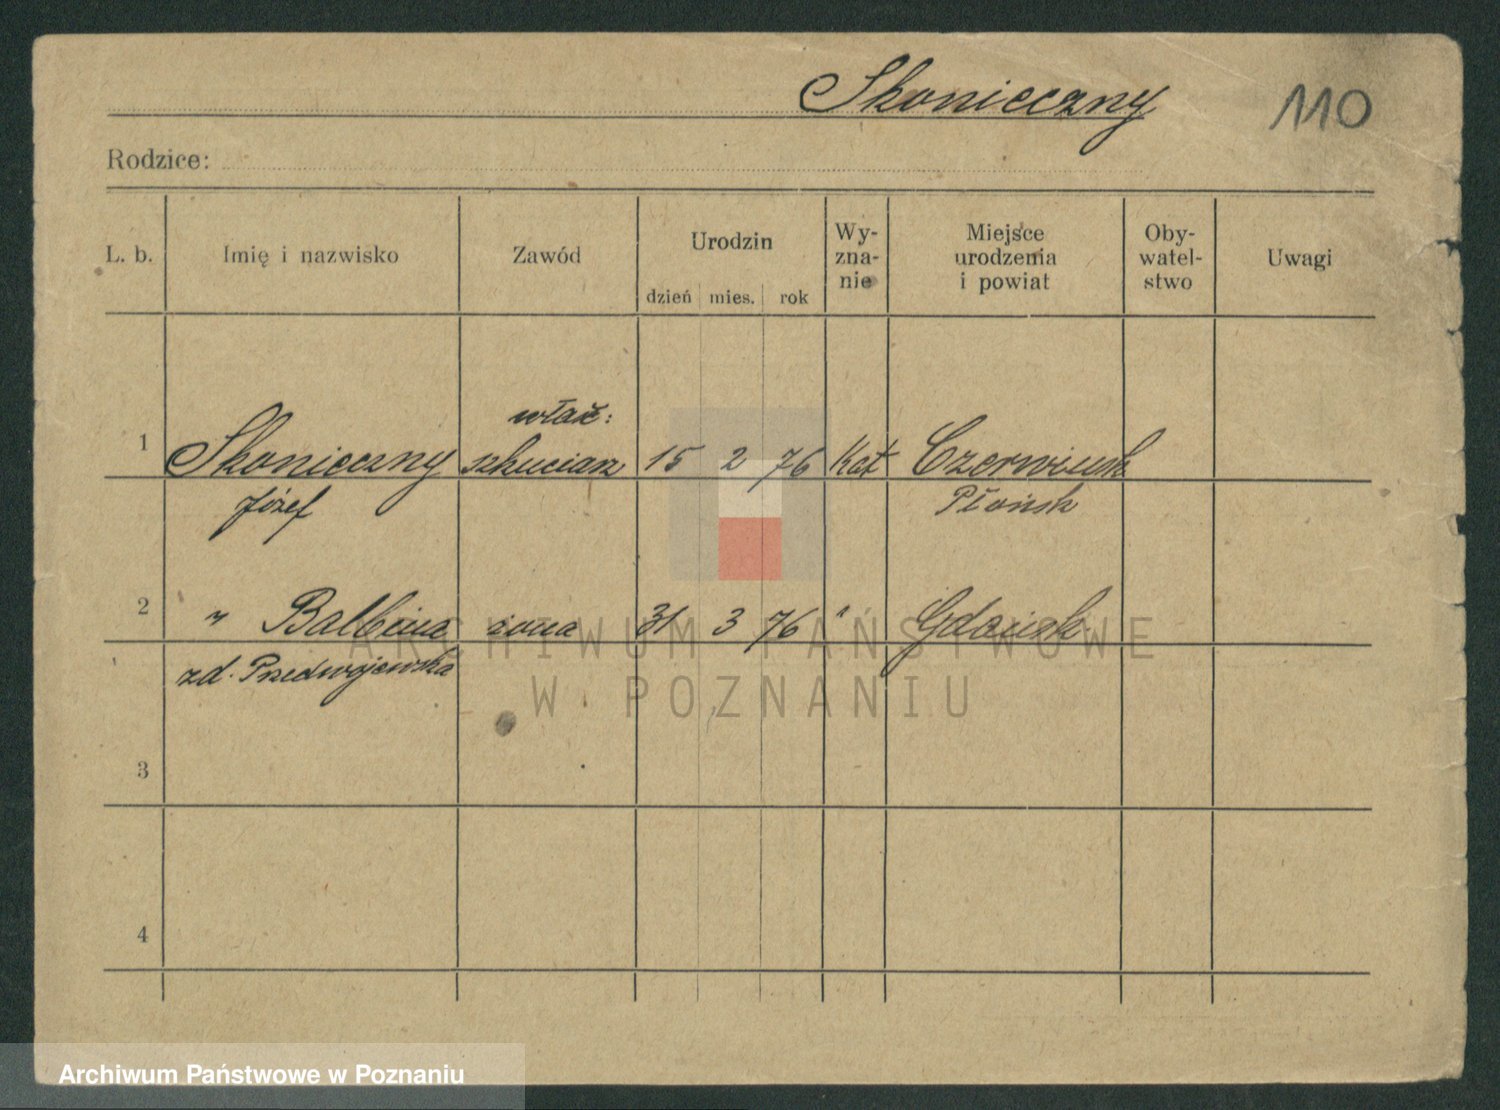 Skonieczny 110
Rodzice:
L. b. Imię i nazwisko Zawód Urodzin dzień mies. rok Wy-zna-nie Miejsce urodzenia i powiat Oby-watel-stwo Uwagi
właś:
1 Skonieczny 15 2 76 Kat Czerwińsk
Józef Płońsk
2 " Balbina żona 31 3 76 " Gdańsk
zd. Przedwojewska
3
4
ARCHIWUM PAŃSTWOWE
W POZNANIU
Archiwum Państwowe w Poznaniu